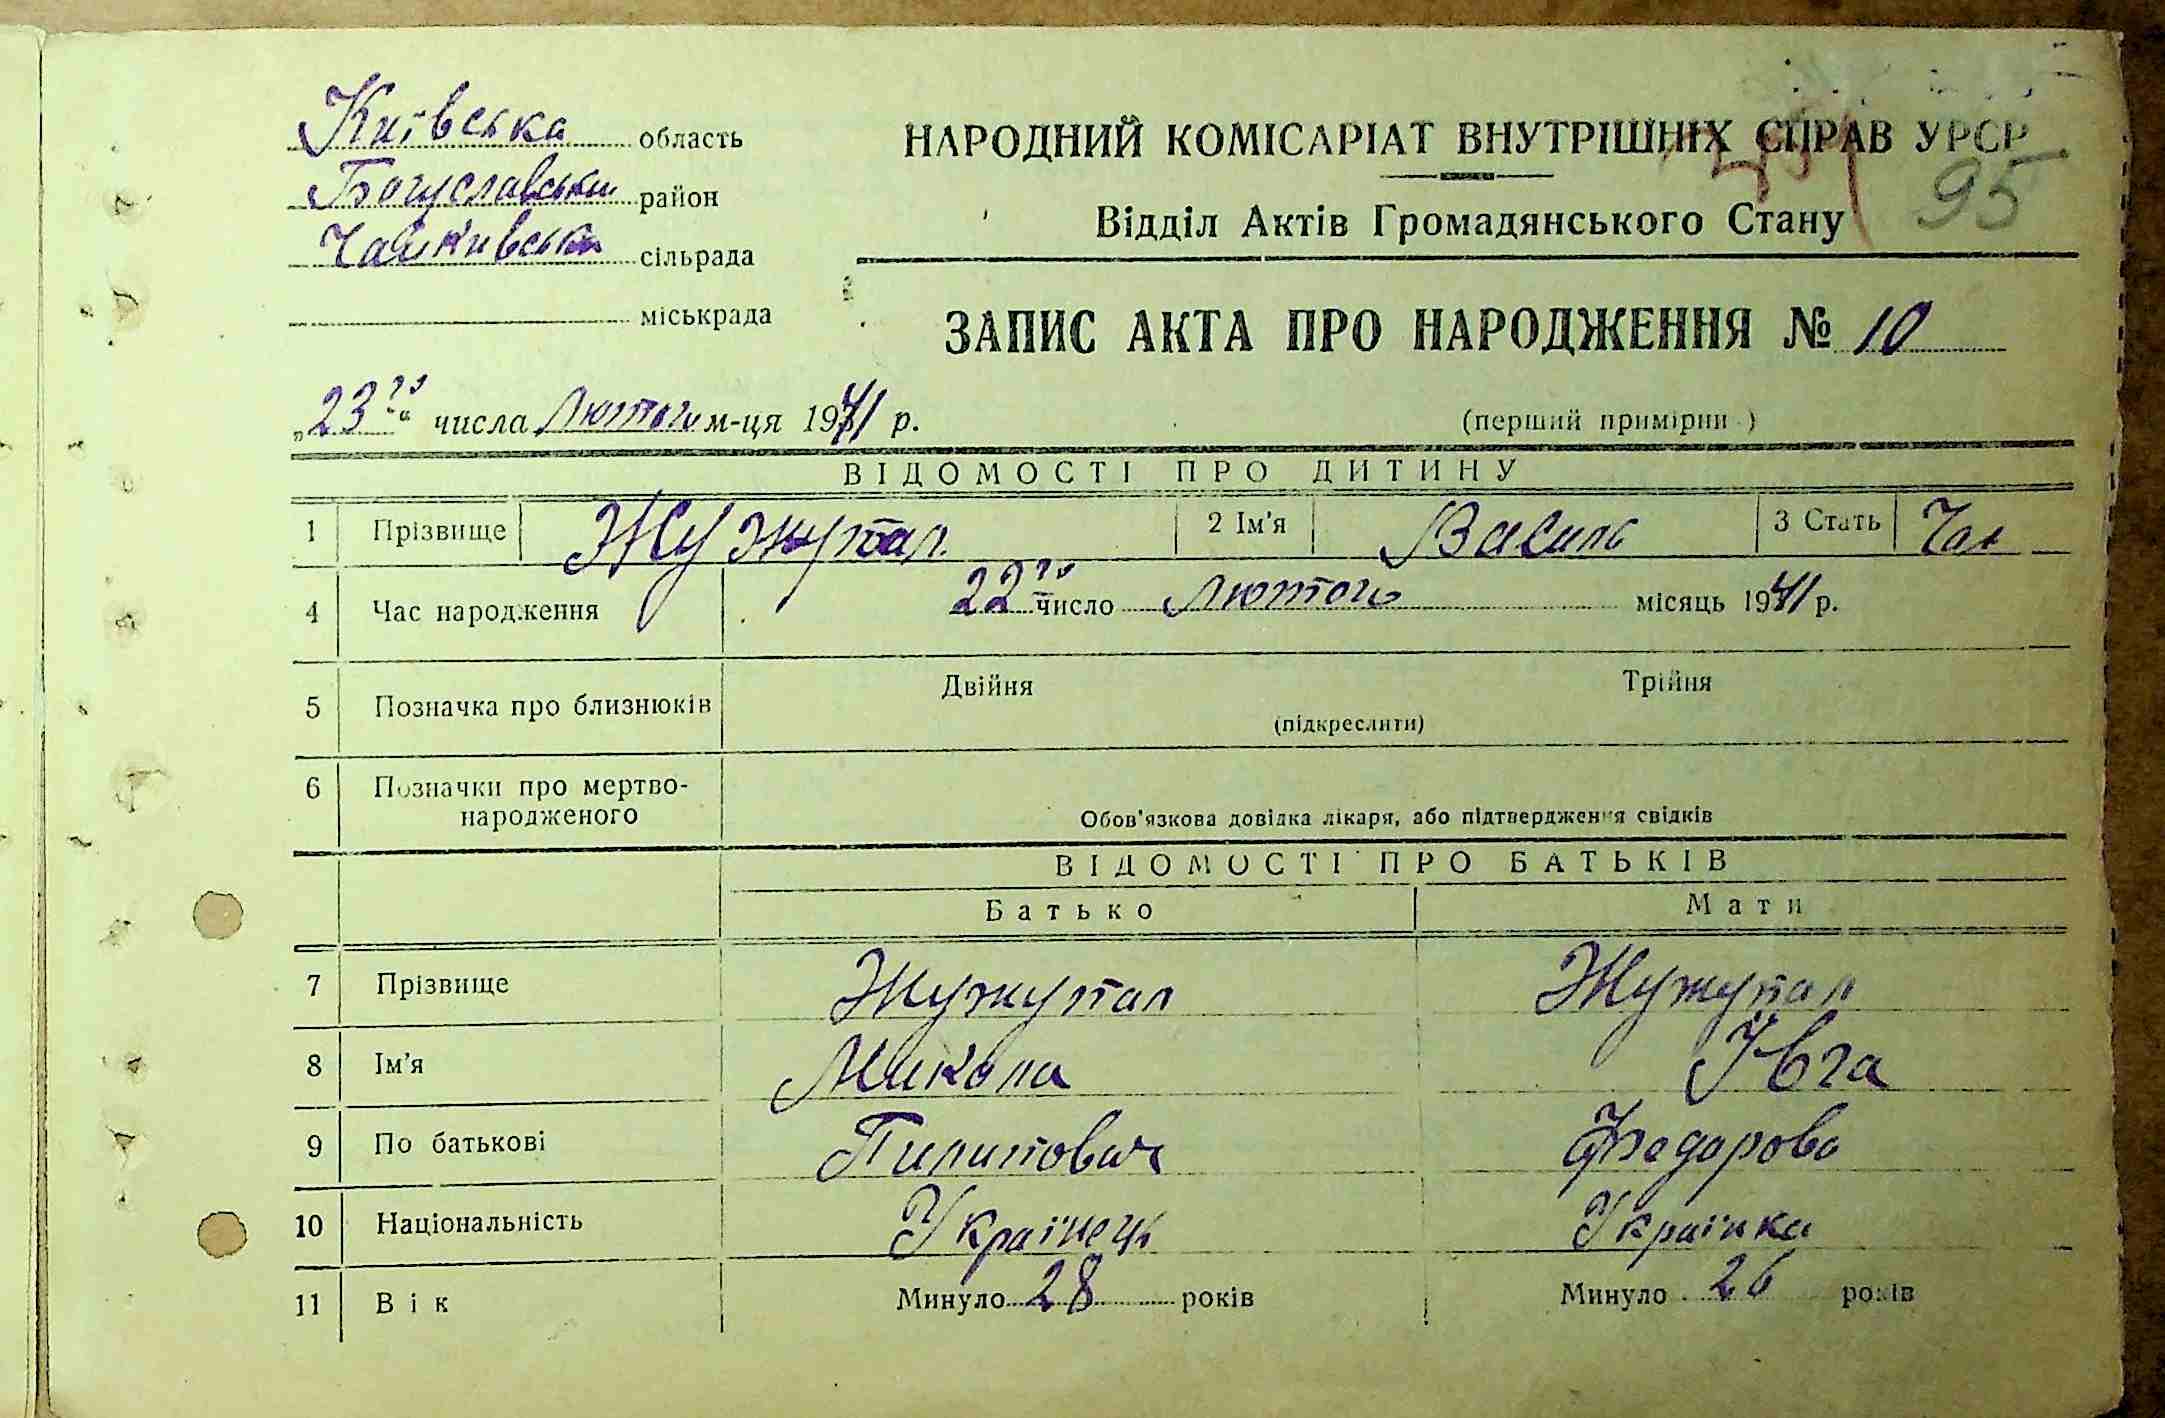 Київська область
Богуславський район
Чайківська сільрада
міськрада
НАРОДНИЙ КОМІСАРІАТ ВНУТРІШНІХ СПРАВ УРСР
95
Відділ Актів Громадянського Стану
ЗАПИС АКТА ПРО НАРОДЖЕННЯ № 10
„23го“ числа Лютого м-ця 1941 р.
(перший примірник)
ВІДОМОСТІ ПРО ДИТИНУ
1 Прізвище Жужупал 2 Ім'я Василь 3 Стать Чол
4 Час народження 22го число Лютого місяць 1941 р.
5 Позначка про близнюків Двійня Трійня
(підкреслити)
6 Позначки про мертво-
народженого Обов'язкова довідка лікаря, або підтвердження свідків
ВІДОМОСТІ ПРО БАТЬКІВ
Батько Мати
7 Прізвище Жужупал Жужупал
8 Ім'я Микола Ївга
9 По батькові Пилипович Федорова
10 Національність Українець Українка
11 Вік Минуло 28 років Минуло 26 років